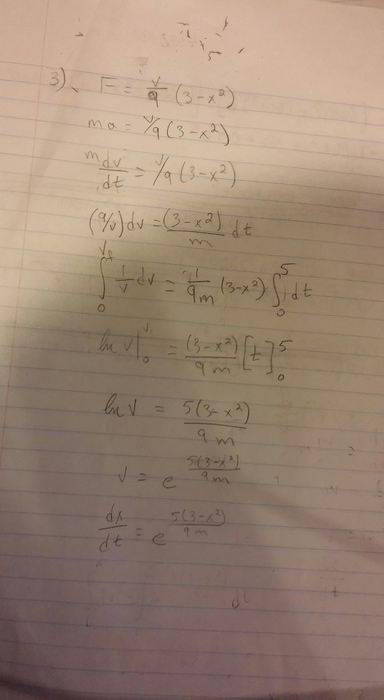 3) F = v/9 (3-x²)
ma = v/9 (3-x²)
m dv/dt = v/9 (3-x²)
(9/v) dv = (3-x²)/m dt
∫₀^V₁ 1/v dv = 1/9m (3-x²) ∫₀⁵ 1 dt
ln v |₀^V₁ = (3-x²)/9m [t]₀⁵
ln V = 5(3-x²)/9m
v = e^(5(3-x²)/9m)
dx/dt = e^(5(3-x²)/9m)